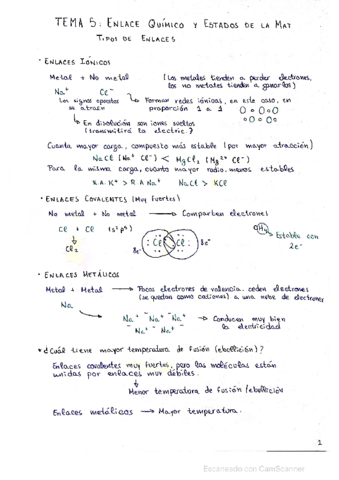 TEMA 5: ENLACE QUÍMICO Y ESTADOS DE LA MAT
TIPOS DE ENLACES
• ENLACES IÓNICOS
Metal + No metal (Los metales tienden a perder electrones, los no metales tienden a ganarlos)
Na⁺ Cl⁻
Los signos opuestos se atraen
Formar redes iónicas, en este caso, en proporción 1 a 1
En disolución son iones sueltos (transmitirá la electric.)
Cuanta mayor carga, compuesto más estable (por mayor atracción)
NaCl (Na⁺ Cl⁻) < MgCl₂ (Mg²⁺ Cl⁻)
Para la misma carga, cuanto mayor radio, menos estables
R.A. K⁺ > R.A Na⁺ NaCl > KCl
• ENLACES COVALENTES (MUY FUERTES)
No metal + No metal → Comparten electrones
Cl + Cl (s²p⁵)
Cl₂
8e⁻ Cl Cl 8e⁻
H₂ Estable con 2e⁻
• ENLACES METÁLICOS
Metal + Metal → Pocos electrones de valencia. ceden electrones
(se quedan como cationes) a una nube de electrones
Na
Na⁺ Na⁺ Na⁺
Na⁺ Na⁺
Conducen muy bien la electricidad
• ¿Cuál tiene mayor temperatura de fusión (ebullición)?
Enlaces covalentes muy fuertes, pero las moléculas están
unidas por enlaces muy débiles.
Menor temperatura de fusión/ebullición
Enlaces metálicos → Mayor temperatura.
1
Escaneado con CamScanner